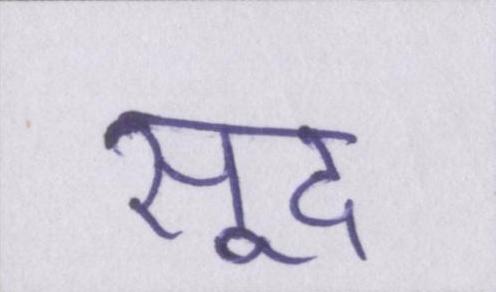 सूद